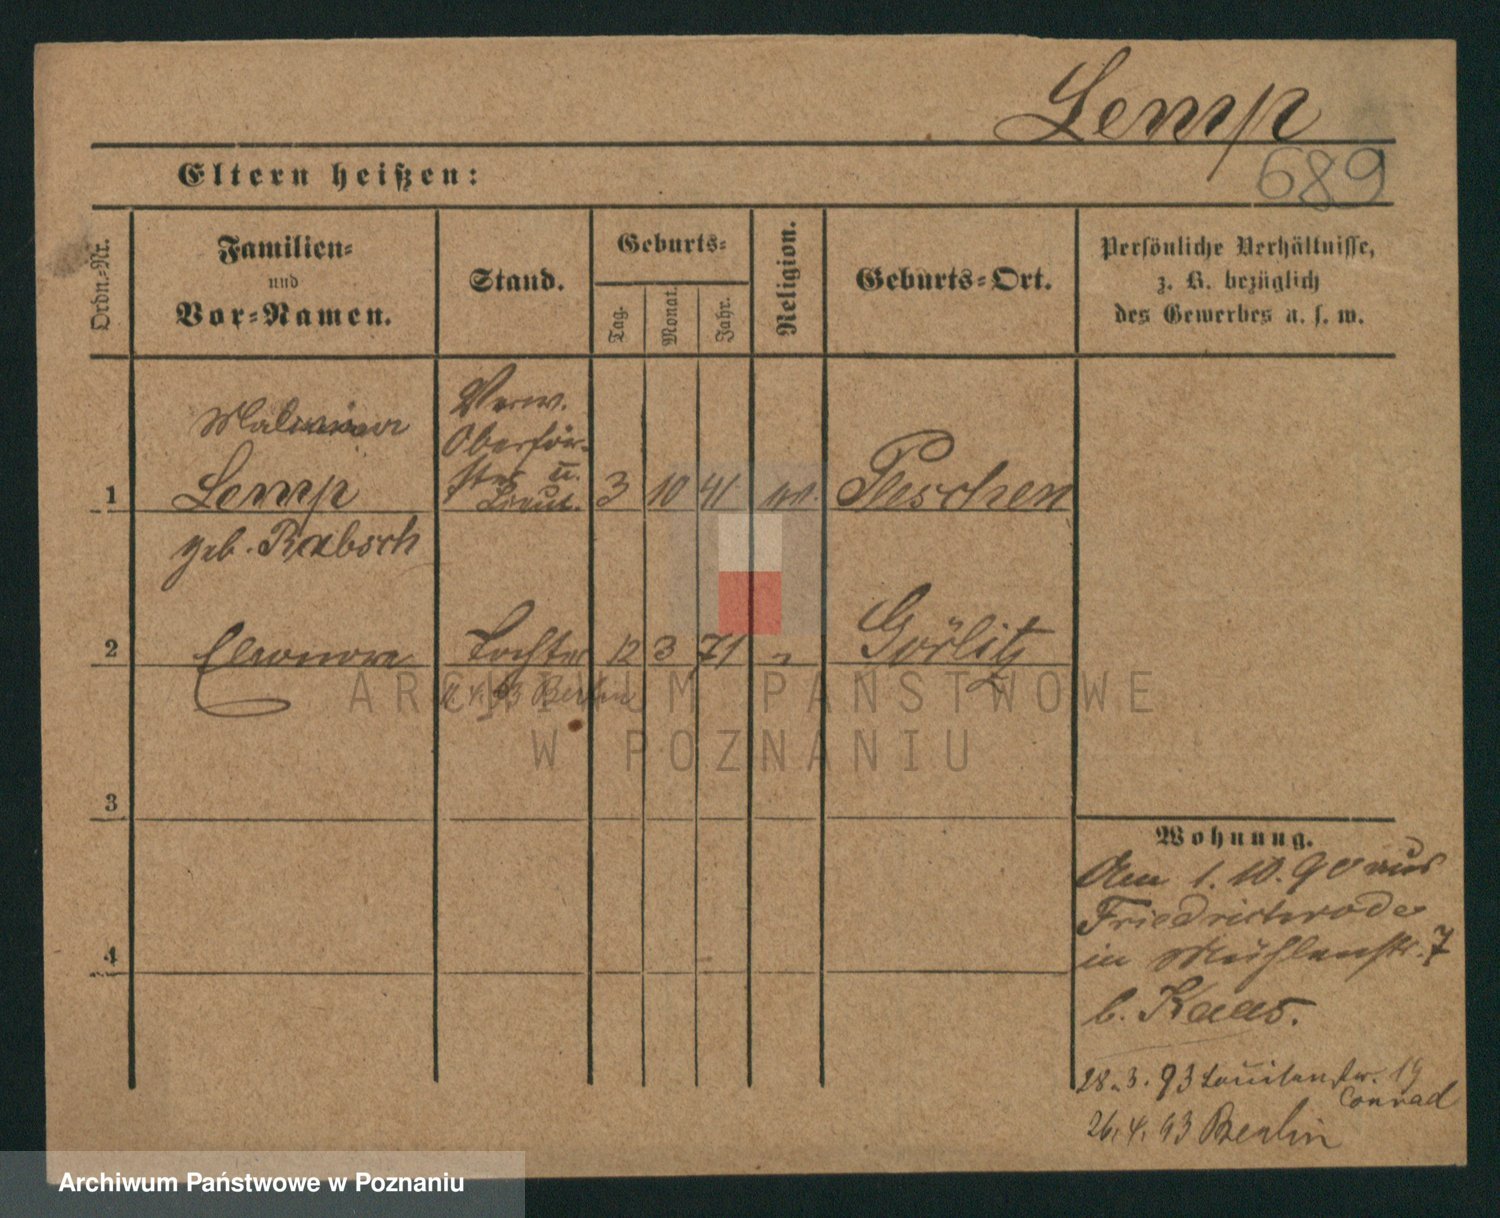 Lemp
689
Eltern heißen:
Ordn.-Nr.
Familien-
und
Vor-Namen.
Stand.
Geburts-
Tag.
Monat.
Jahr.
Religion.
Geburts-Ort.
Persönliche Verhältnisse,
z. B. bezüglich
des Gewerbes u. s. w.
Verw.
Oberför-
ster u.
Lieut.
1 Lemp 3 10 41 Peschen
geb. Rabsch
2 Eleonore Tochter 12 3 71 " Görlitz
4. 93 Berlin
3
4
Wohnung.
Am 1. 10. 90 aus
Friedrichrode
in Mühlenstr. 7
b. Kaas.
28. 3. 93 Louisenstr. 19
Conrad
26. 4. 93 Berlin
ARCHIWUM PAŃSTWOWE
W POZNANIU
Archiwum Państwowe w Poznaniu